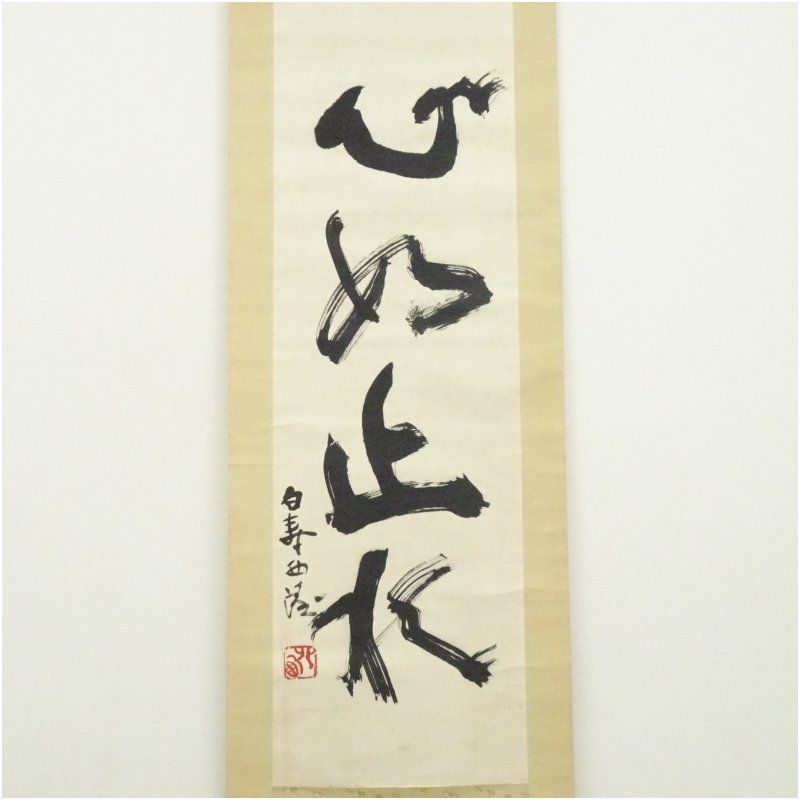 心如止水
白寿西蔭